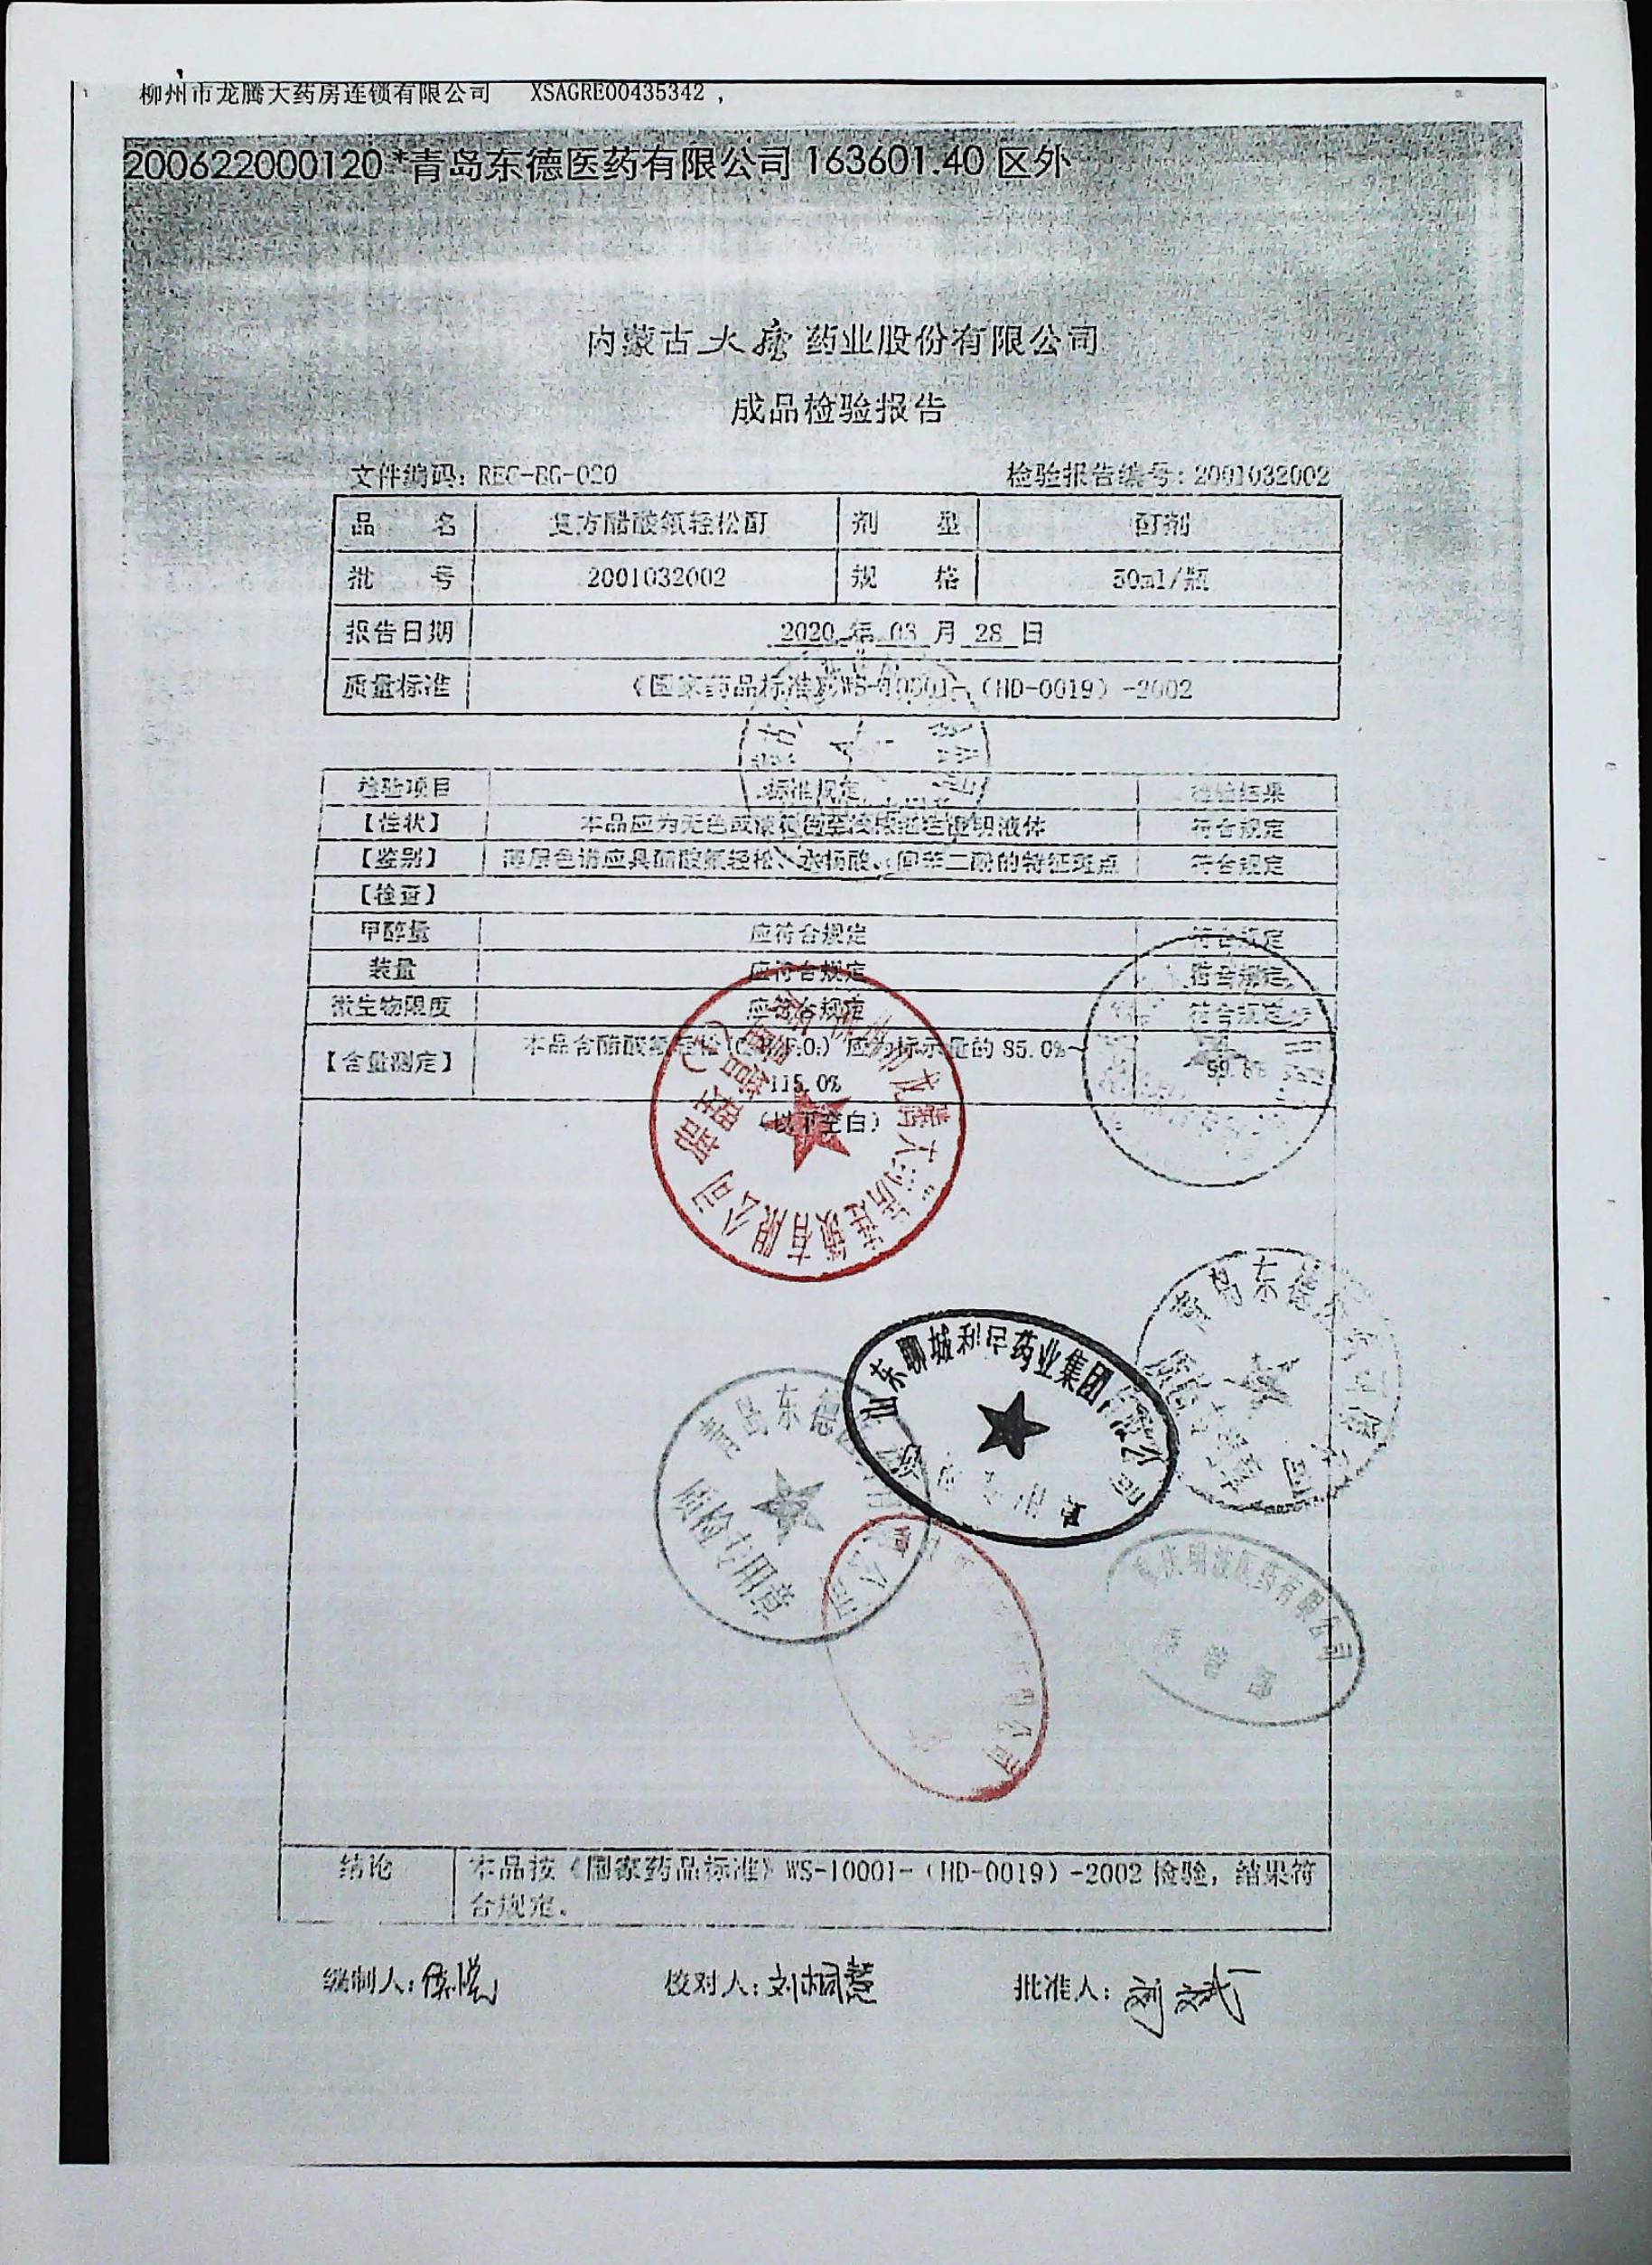 柳州市龙腾大药房连锁有限公司 XSAGRE00435342 ,
200622000120*青岛东德医药有限公司 163601.40 区外
内蒙古大唐药业股份有限公司
成品检验报告
文件编码: REC-BG-020 检验报告编号: 2001032002
品 名 复方醋酸氟轻松酊 剂 型 酊剂
批 号 2001032002 规 格 50ml/瓶
报告日期 2020 年 03 月 28 日
质量标准 《国家药品标准》WS-10001-(HD-0019)-2002
检验项目 标准规定 检验结果
【性状】 本品应为无色或淡棕色至液体 符合规定
【鉴别】 薄层色谱应具醋酸氟轻松、水杨酸、间苯二酚的特征斑点 符合规定
【检查】
甲醇量 应符合规定 符合规定
装量 应符合规定 符合规定
微生物限度 应符合规定 符合规定
【含量测定】 本品含醋酸氟轻松 应为标示量的 85.0%~
115.0%
(以下空白)
柳州市龙腾大药房连锁有限公司
质量管理部
山东聊城利民药业集团有限公司
青岛东德医药有限公司
质检专用章
青岛东德医药有限公司
质检专用章
重庆明波医药有限公司
质管部
结论 本品按《国家药品标准》WS-10001-(HD-0019)-2002 检验, 结果符
合规定。
编制人: 校对人:刘桐慧 批准人: 刘文斌